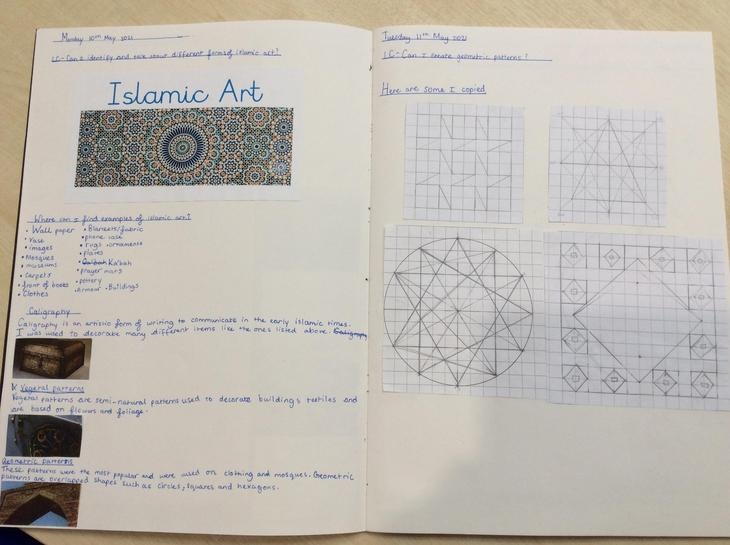 Monday 10th May 2021
LC- Can I identify and talk about different forms of islamic art?
Islamic Art
Where can I find examples of islamic art?
• Wall paper
• Vase
• images
• Mosques
• museums
• Carpets
• front of books
• Clothes
• Blankets/fabric
• phone case
• rugs • ornaments
• plates
• Ca'bah Ka'bah
• prayer mats
• pottery
• Armour • Buildings
Caligraphy
Caligraphy is an artistic form of writing to communicate in the early islamic times.
I was used to decorate many different items like the ones listed above. Caligraphy
Vegetal patterns
Vegetal patterns are semi-natural patterns used to decorate buildings textiles and
are based on flowers and foliage.
Geometric patterns
These patterns were the most popular and were used on clothing and mosques. Geometric
patterns are overlapped shapes such as circles, squares and hexagons.
Tuesday 11th May 2021
LC- Can I create geometric patterns?
Here are some I copied